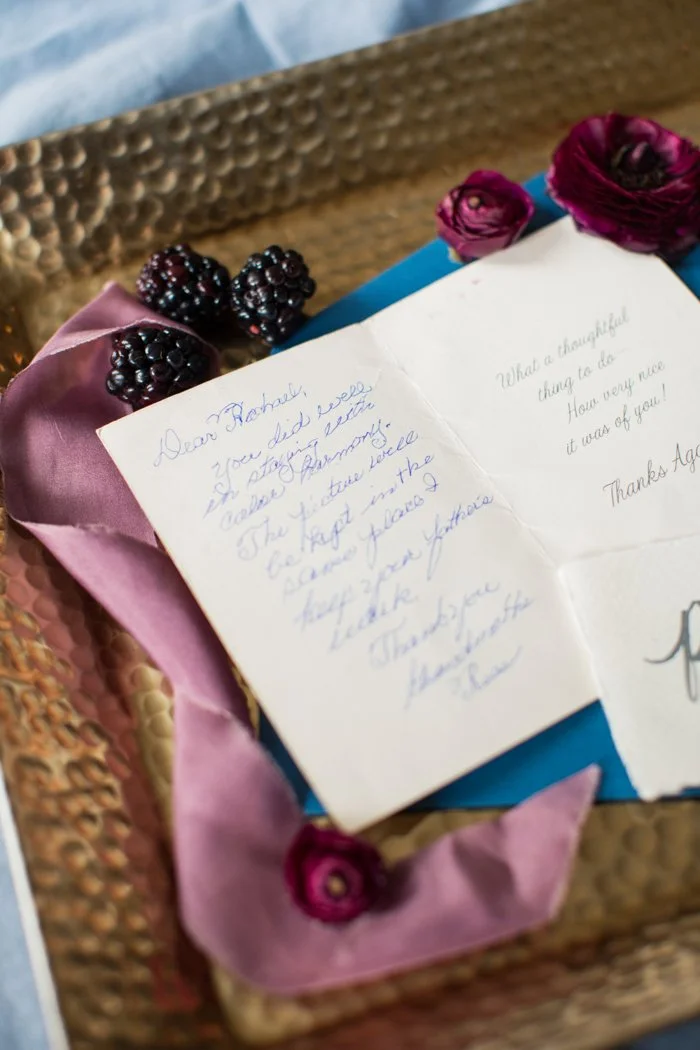 Dear Rachael,
you did well
in staying with
color Harmony.
The picture will
be kept in the
same place I
keep your father's
work.
Thank you
Grandmother
What a thoughtful
thing to do—
How very nice
it was of you!
Thanks